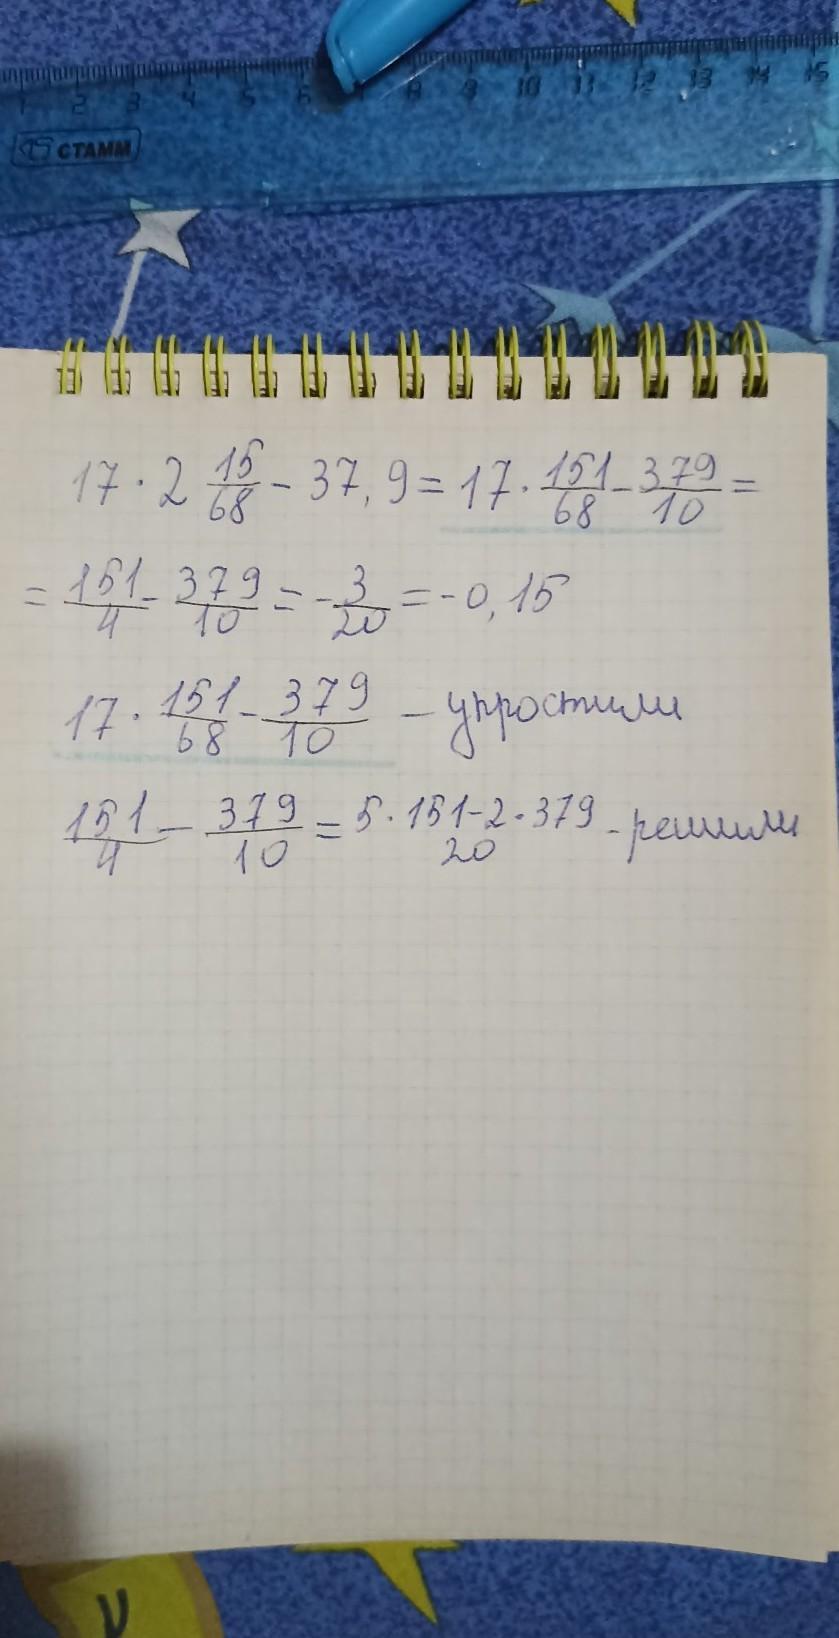 1 2 3 4 5 6 8 9 10 11 12 13 14 15
15 СТАММ
17 · 2 15/68 - 37,9 = 17 · 151/68 - 379/10 =
= 151/4 - 379/10 = - 3/20 = -0,15
17 · 151/68 - 379/10 - упростили
151/4 - 379/10 = 5·151-2·379/20 - решили